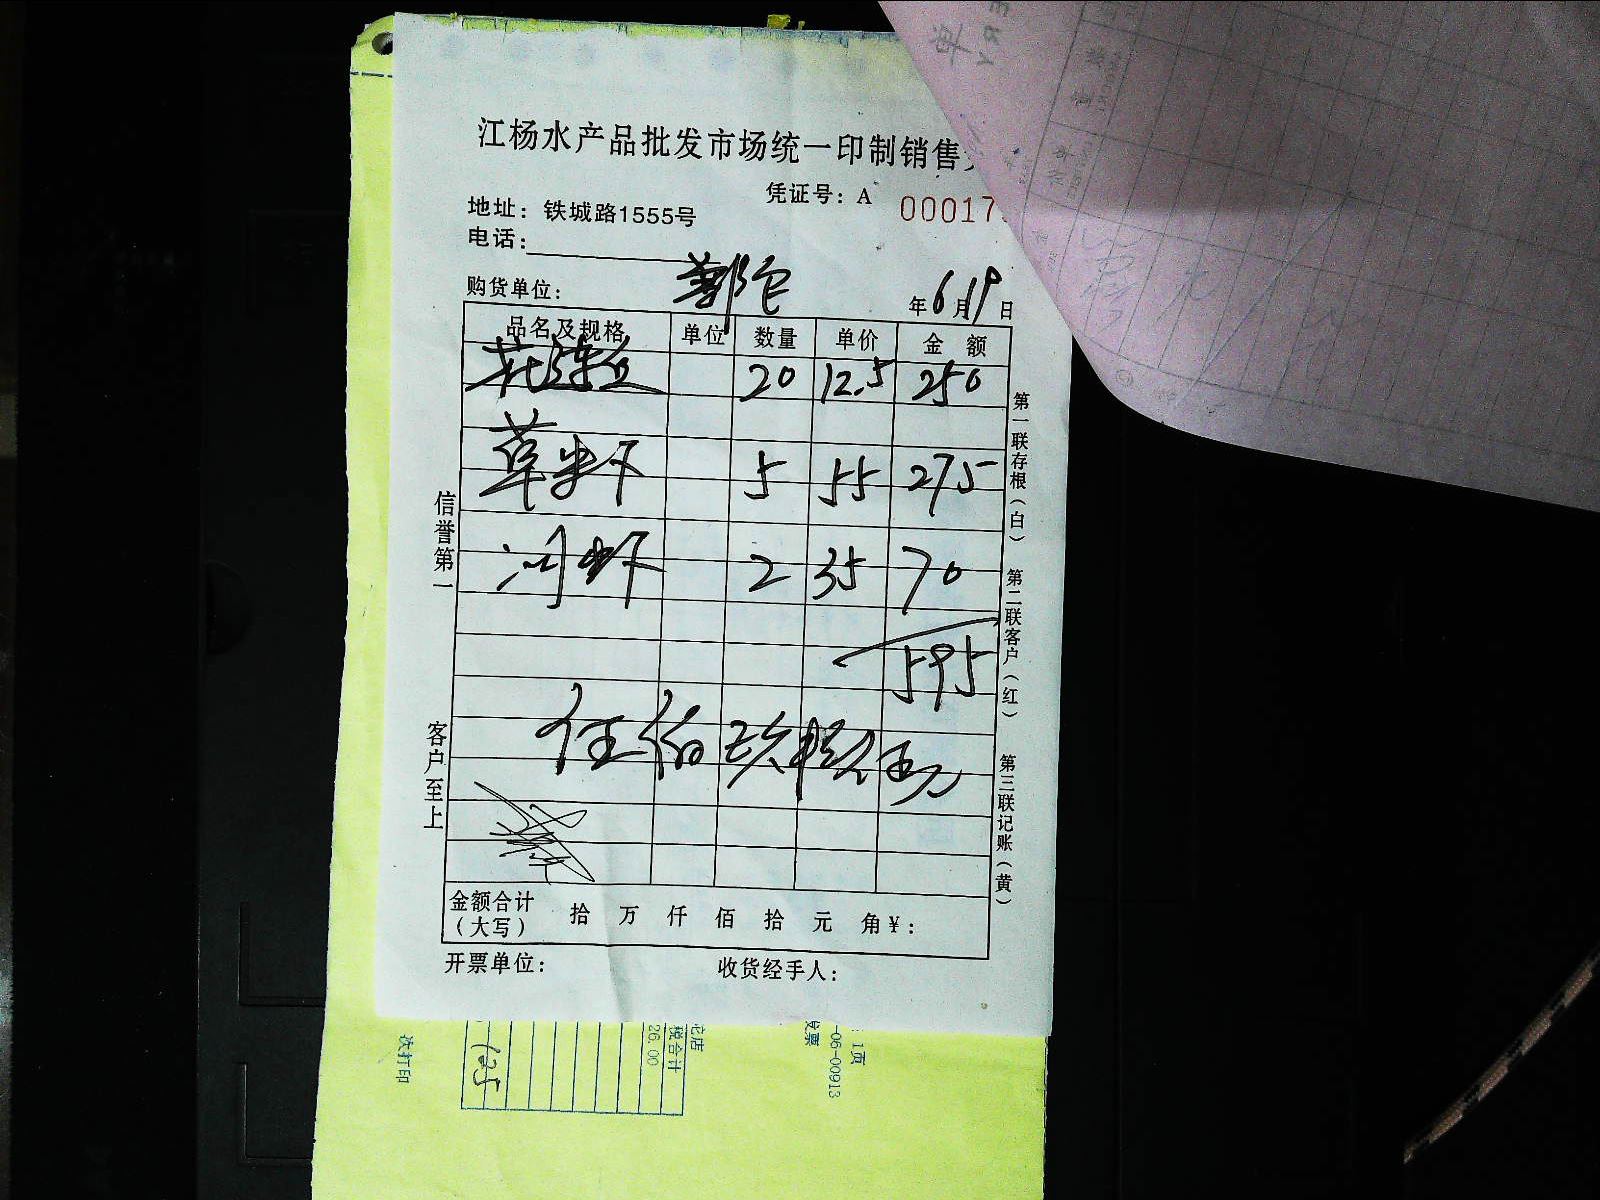 江杨水产品批发市场统一印制销售
凭证号: A 00017
地址: 铁城路1555号
电话:
购货单位:
年6月19日
品名及规格 单位 数量 单价 金额
花鲢鱼 20 12.5 250
草虾 5 55 275
河虾 2 35 70
595
伍佰玖拾伍元
金额合计(大写) 拾 万 仟 佰 拾 元 角 ¥:
开票单位: 收货经手人:
信誉第一
客户至上
第一联存根(白)
第二联客户(红)
第三联记账(黄)
税合计
26.00
125
次打印
1页
-06-00913
发票